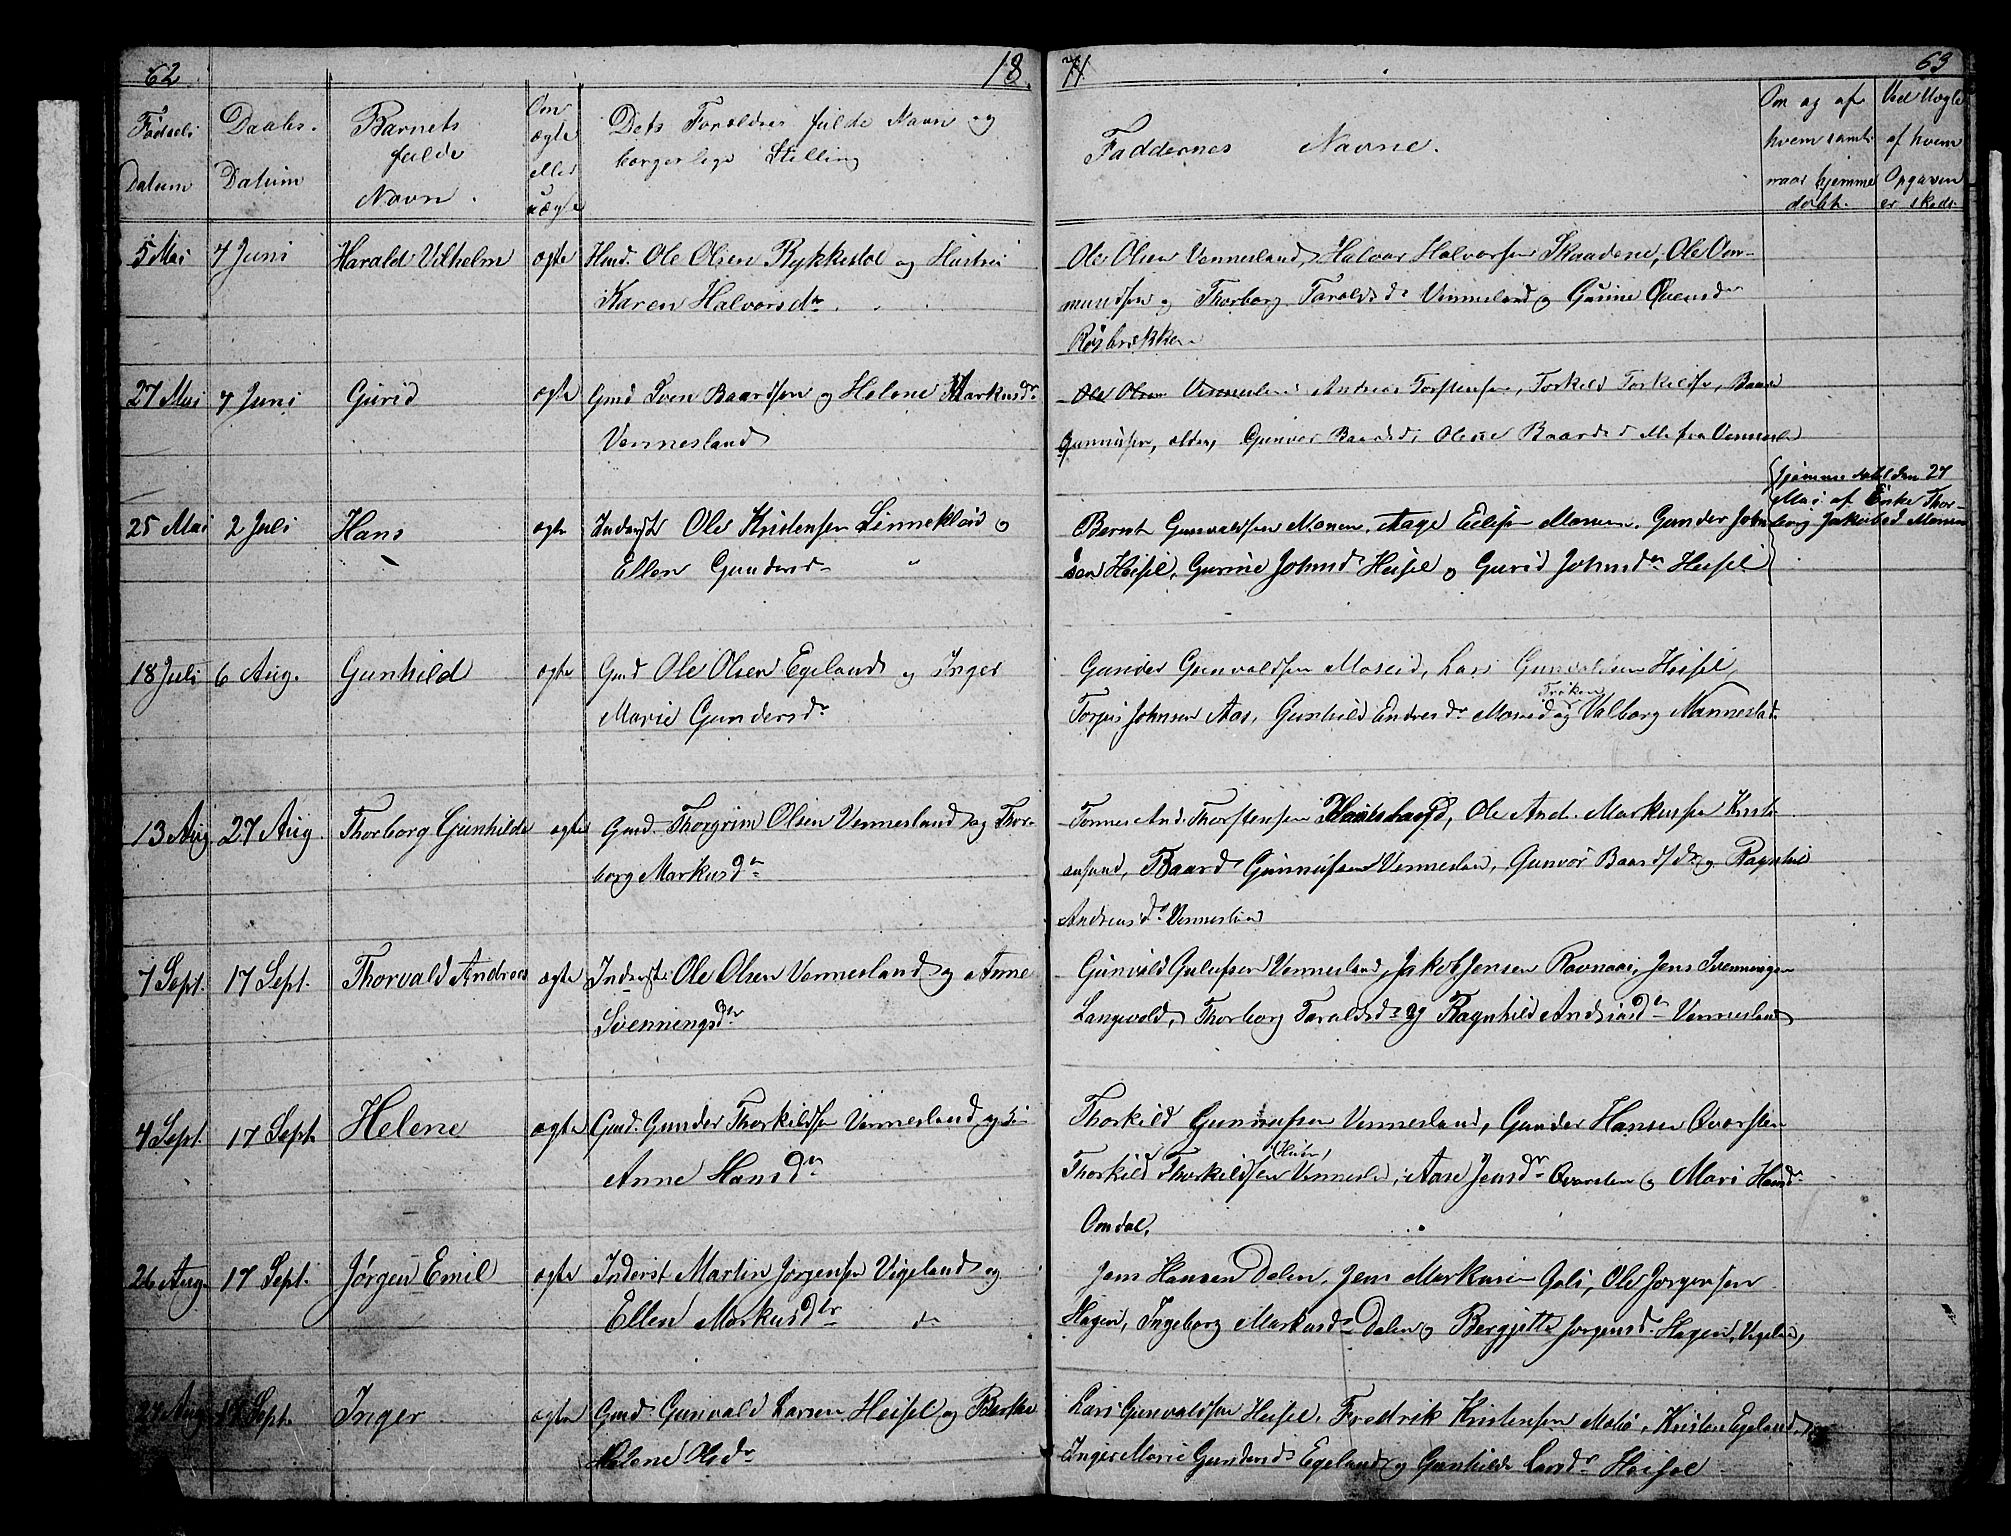 62
18
71
63
Fødsels Datum
Daabs. Datum
Barnets fulde Navn.
Om ægte eller uægte
Dets Forældres fulde Navn og borgerlige Stilling
Faddernes Navne.
Om og af hvem samt naar hjemmedøbt.
af hvem Opgaven er skede
5 Mai 4 Juni Harald Vilhelm ægte Husd. Ole Olsen Rykkestøl og Hustru
Karen Halvorsdr
Ole Olsen Vennesland, Halvor Halvorsen Skaadene, Ole Om-
mundsen og Thorborg Taraldsdr Vennesland og Gurine
27 Mai 4 Juni Gurid ægte Gmd Sven Baardsen og Helene Markusdr
Vennesland
Ole Olsen Vennesland Andreas Torstensen, Torkild Torkildsen, Baard
Gunnufsen, Gunvor Baardsd. Olene Baardsd Alle fra Vennesla
25 Mai 2 Juli Hans ægte Inderst Ole Kristensen og
Ellen Gundersdr
Bernt Gunvaldsen Moseen, Aage Moseen, Gunder John
sen Heisel, Gurine Johnsd. Heisel og Gurid Johnsdr Heisel
hjemmedøbt den 27
Mai af Enke Thor-
borg Jakobsd
18 Juli 6 Aug. Gunhild ægte Gmd Ole Olsen Egeland og Inger
Marie Gundersdr
Gunder Gunvaldsen Moseid, Lars Gunvaldsen Heisel,
Frøken
Torjus Johnsen Aas, Gunhild Endresdr Moseid og Valborg Mannestad
13 Aug. 27 Aug. Thorborg Gunhilde ægte Gmd. Thorgrim Olsen Vennesland og Thor-
borg Markusdr
Tønnes And. Thorstensen, Ole And. Markusen Kristi-
ansand, Baard Gunnufsen Vennesland, Gunvor Baardsdr og Ragnhild
Andreasdr Vennesland
7 Sept. 17 Sept. Thorvald Andreas ægte Inderst. Ole Olsen Vennesland og Anne
Svenningsdtr
Gunvald Vennesland, Jakob Jensen Ravnaas, Jens Svenningsen
Langevold, Thorborg Taraldsdr og Ragnhild Andreasdr Vennesland
4 Sept. 17 Sept. Helene ægte Gmd. Gunder Thorkildsen Vennesland og
Anne Hansdr
Thorkild Gunnufsen Vennesland, Gunder Hansen Qvarsten
Thorkild Thorkildsen Vennesland, Aase Jensdr Qvarsten og Mari Hansdr
Omdal.
26 Aug. 17 Sept. Jørgen Emil ægte Inderst Martin Jørgensen Vigeland og
Ellen Markusdtr do
Jens Hansen Dalen, Jens Markusen, Ole Jørgensen
Hagen, Ingeborg Markusdr Dalen og Bergjitte Jørgensd. Hagen, Vigeland,
27 Aug. 17 Sept. Inger ægte Gmd. Gunvald Larsen Heisel og
Helene Olsdr
Lars Gunvaldsen Heisel, Fredrik Kristensen, Kristen Egeland,
Inger Marie Gundersd Egeland og Gunhilde Larsdr Heisel